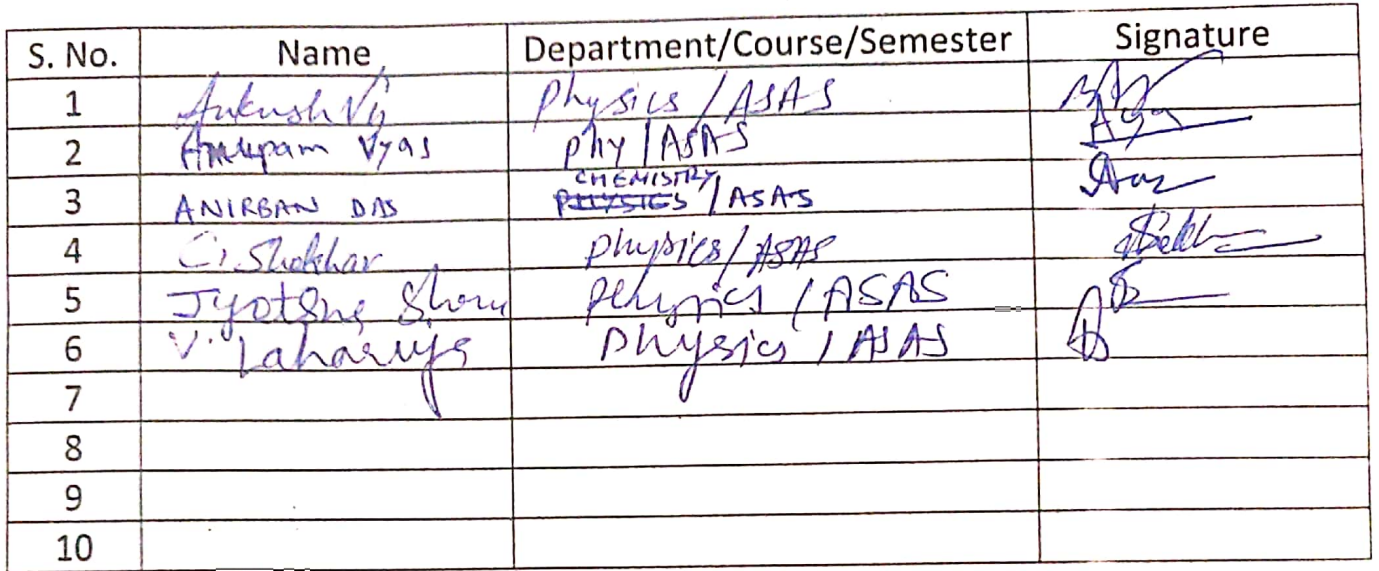 S. No. Name Department/Course/Semester Signature
1 Ankush Vij Physics / ASAS
2 Anupam Vyas Phy / ASAS
CHEMISTRY
3 ANIRBAN DAS PHYSICS / ASAS
4 C. Shekhar Physics / ASAS
5 Jyotsna Physics / ASAS
6 V. Physics / ASAS
7
8
9
10